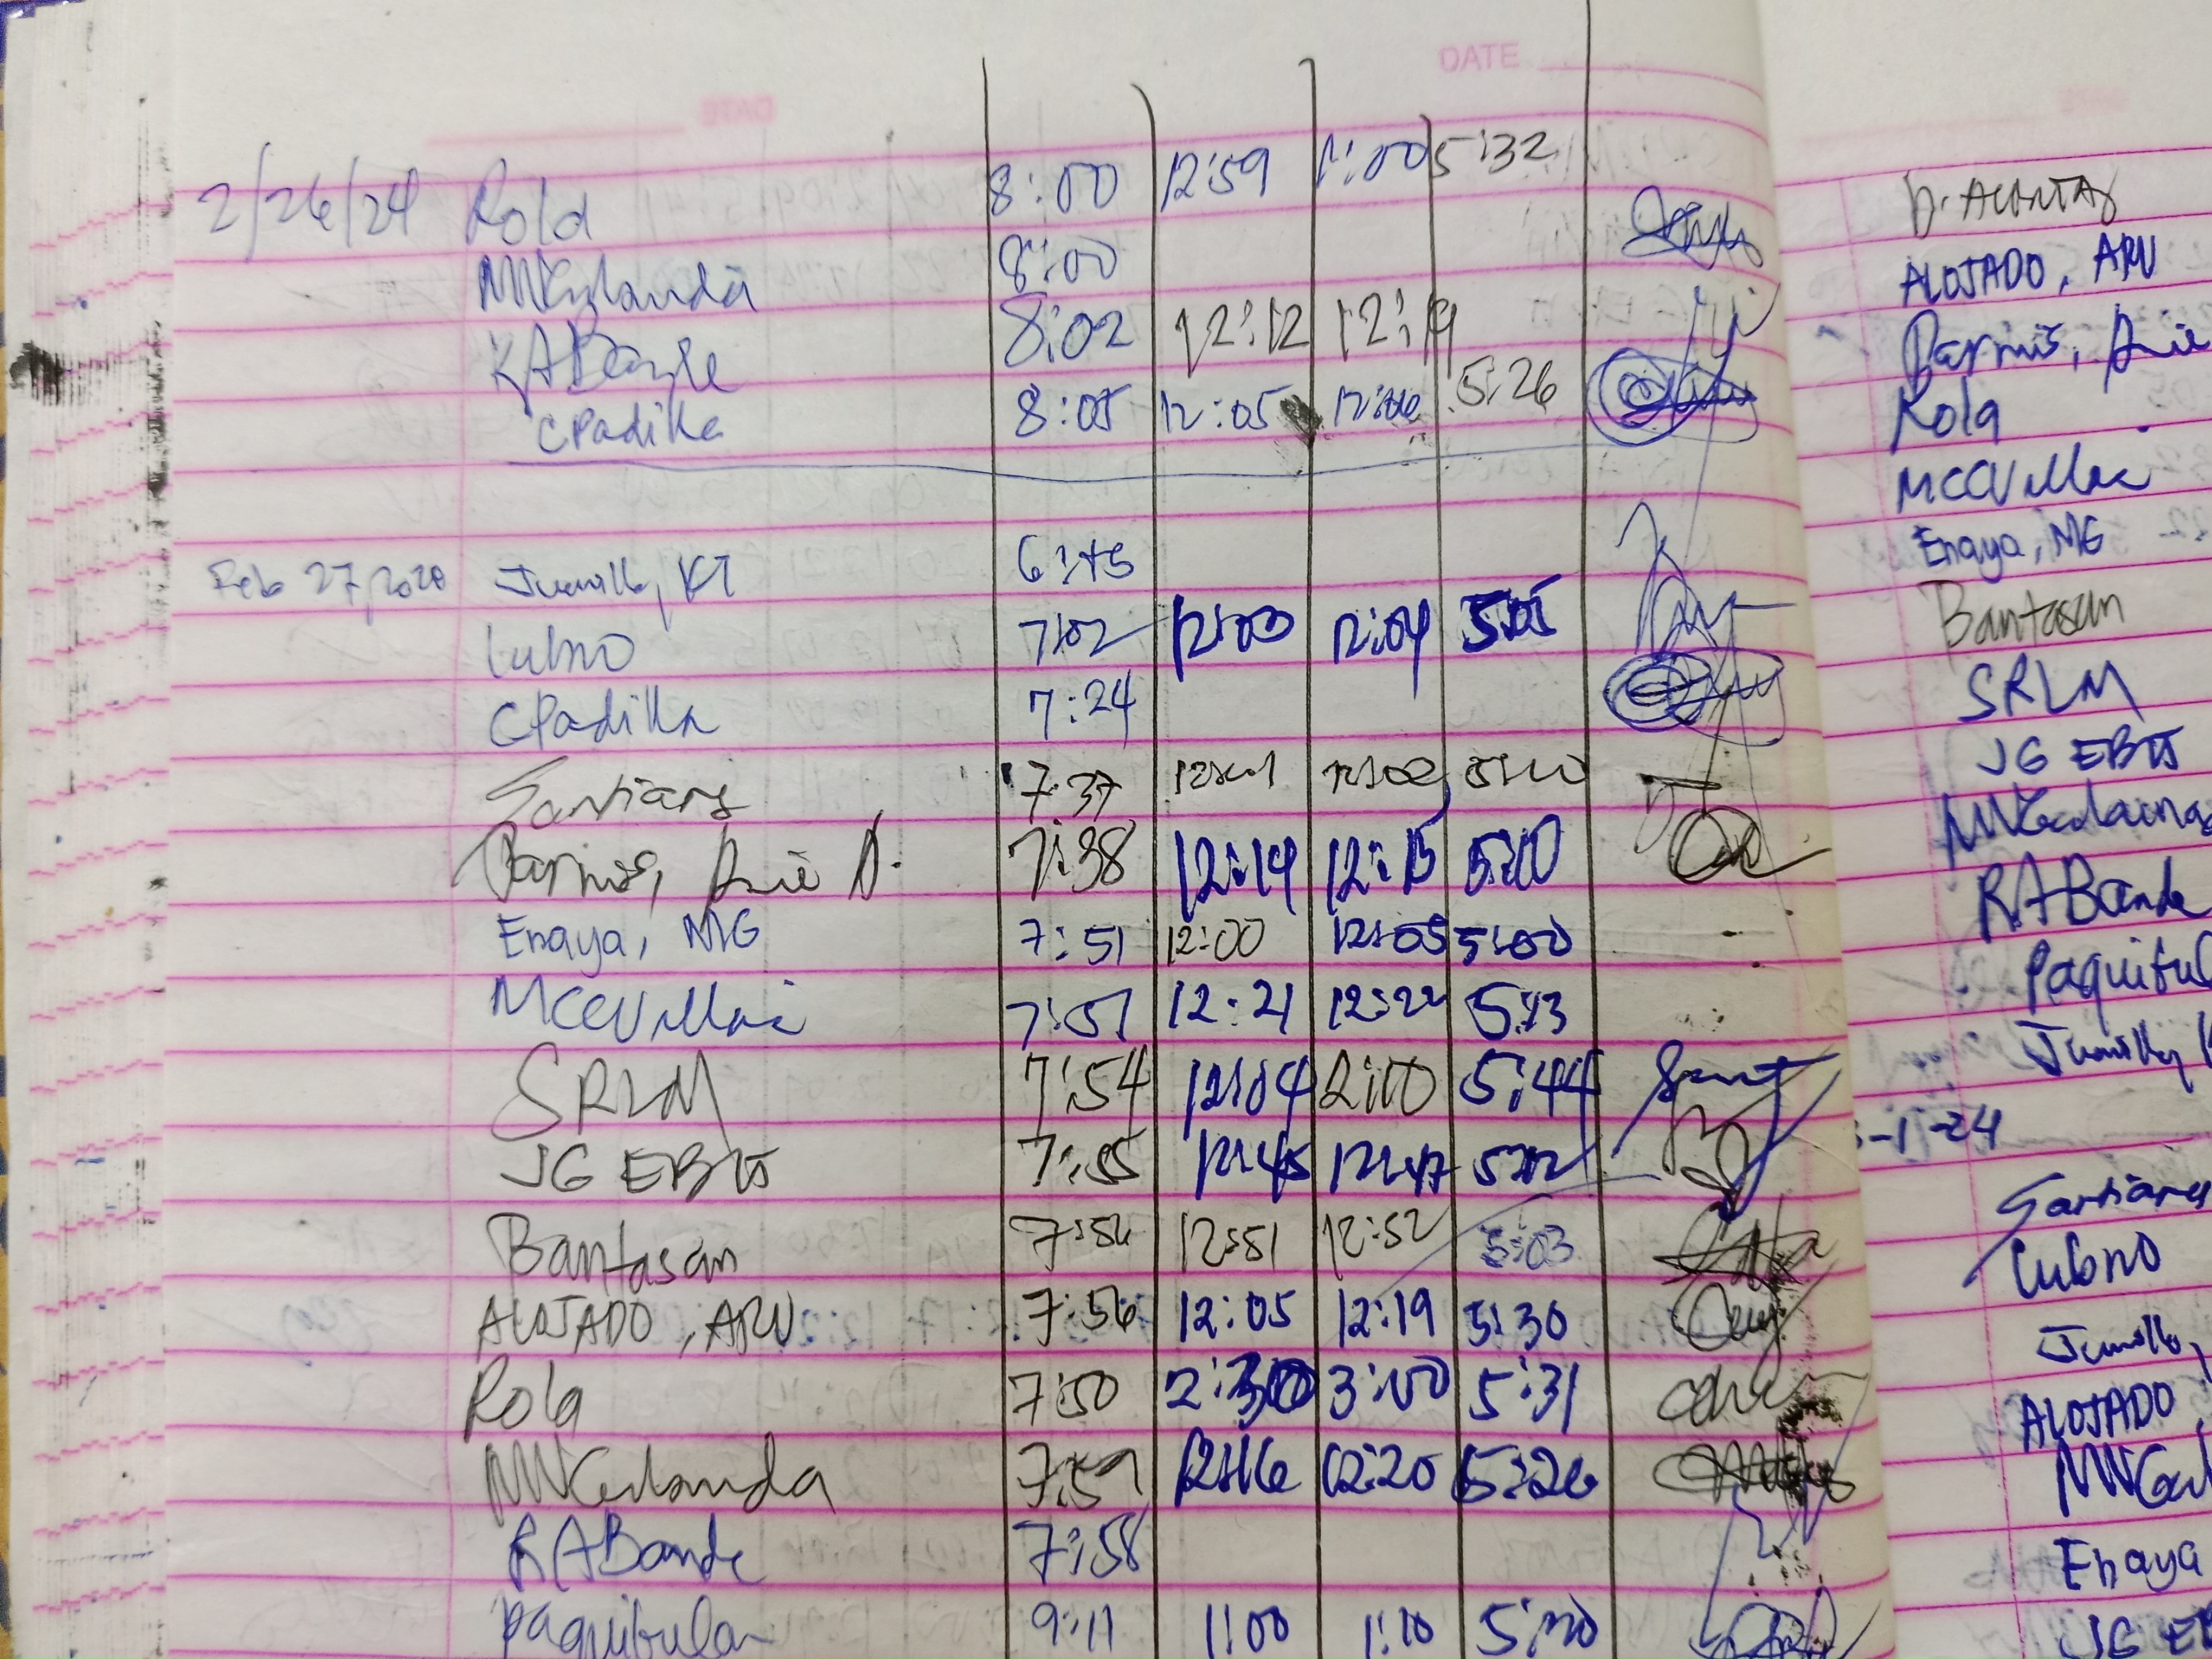 DATE
2/26/24 Rola 8:00 12:59 1:00 5:32
MNGalanda 8:00
RABande 8:02 12:12 12:19
CPadilla 8:05 12:05 12:06 5:26
Feb 27, 2020 Jumilla, KT 6:45
Lubno 7:02 12:03 12:04 5:05
CPadilla 7:24
Santiany 7:37 12:01 12:02 5:10
7:38 12:14 12:15 5:10
Enaya, MG 7:51 12:00 12:05 5:00
MCCVillar 7:51 12:21 12:22 5:13
SRLM 7:54 12:04 2:00 5:44
JG 7:55 12:45 12:47 5:12
Bantasan 7:56 12:51 12:52 5:03
ALOJADO, ARV 7:56 12:05 12:19 5:30
Rola 7:50 2:30 3:00 5:31
MNGalanda 7:59 12:16 12:20 5:26
RABande 7:58
Paquibulan 9:11 1:00 1:10 5:30
ALOJADO, ARV
Rola
MCCVillar
Enaya, MG
Bantasan
SRLM
JG
MNGalanda
RABande
Paquibul
Jumilla
-1-24
Santiany
Lubno
Jumilla,
ALOJADO,
MNGal
Enaya
JG